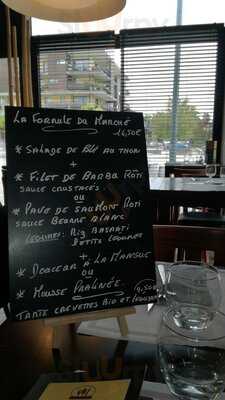 La Formule du Marché
16,50€
* Salade de Blé au thon
+
* Filet de Barba Rôti
sauce crustacés
ou
* Pavé de saumon Rôti
sauce Beurre Blanc
légumes: Riz Basmati
Petits légumes
+
* Douceur à la Mangue
ou
* Mousse Pralinée
9,50€
Tarte crevettes Bio et